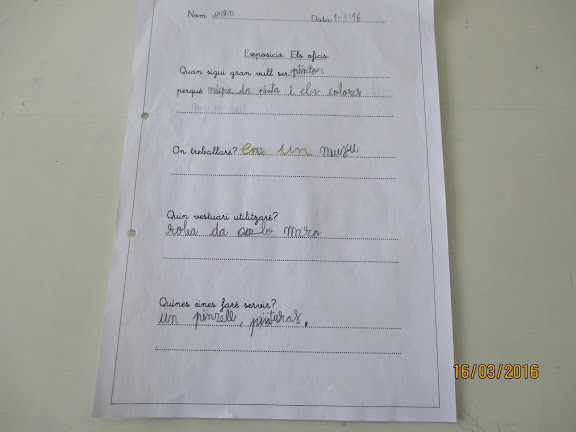 Nom Data 1-3-16
Exposició: Els oficis
Quan sigui gran vull ser: pintor
perquè da pinta i els colores
On treballaré? en un museu
Quin vestuari utilitzaré?
roba da lo mara
Quines eines faré servir?
un pinzell, pinturas.
16/03/2016